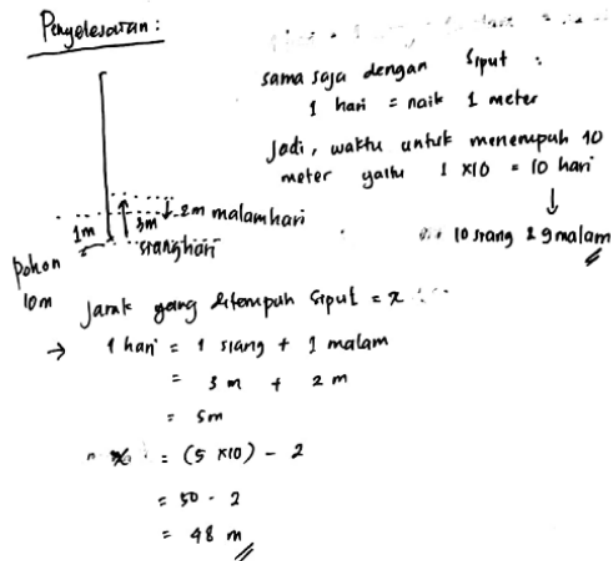 Penyelesaian :
sama saja dengan siput :
1 hari = naik 1 meter
Jadi, waktu untuk menempuh 10
meter yaitu 1 x10 = 10 hari
↓
10 siang 29 malam
1m
3m
2m malam hari
siang hari
pohon
10m
Jarak yang ditempuh siput = x
→ 1 hari = 1 siang + 1 malam
= 3 m + 2 m
= 5m
x = (5 x10) - 2
= 50 - 2
= 48 m